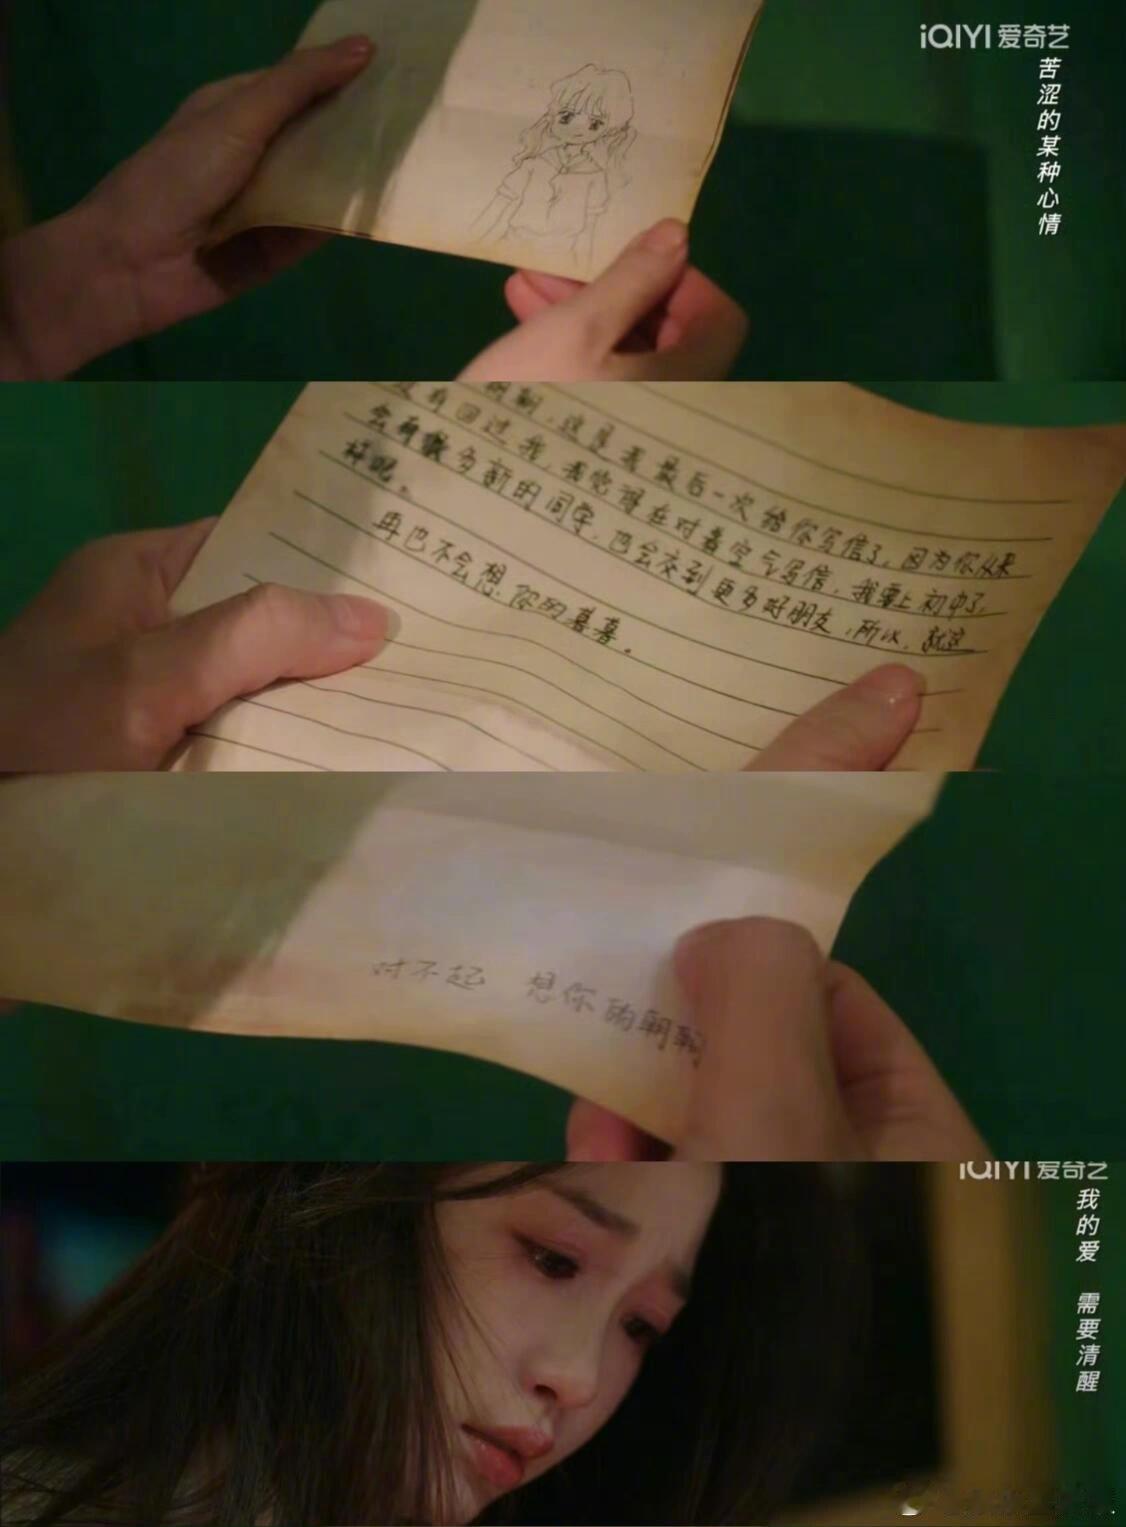 iQIYI 爱奇艺
苦涩的某种心情
朝朝，这是我最后一次给你写信了，因为你从来
没有回过我，我总觉得在对着空气写信，我要上初中了，
会有很多新的同学，也会交到更多好朋友，所以，就这
样吧。
再也不会想你的暮暮。
对不起 想你的朝朝
iQIYI 爱奇艺
我的爱 需要清醒